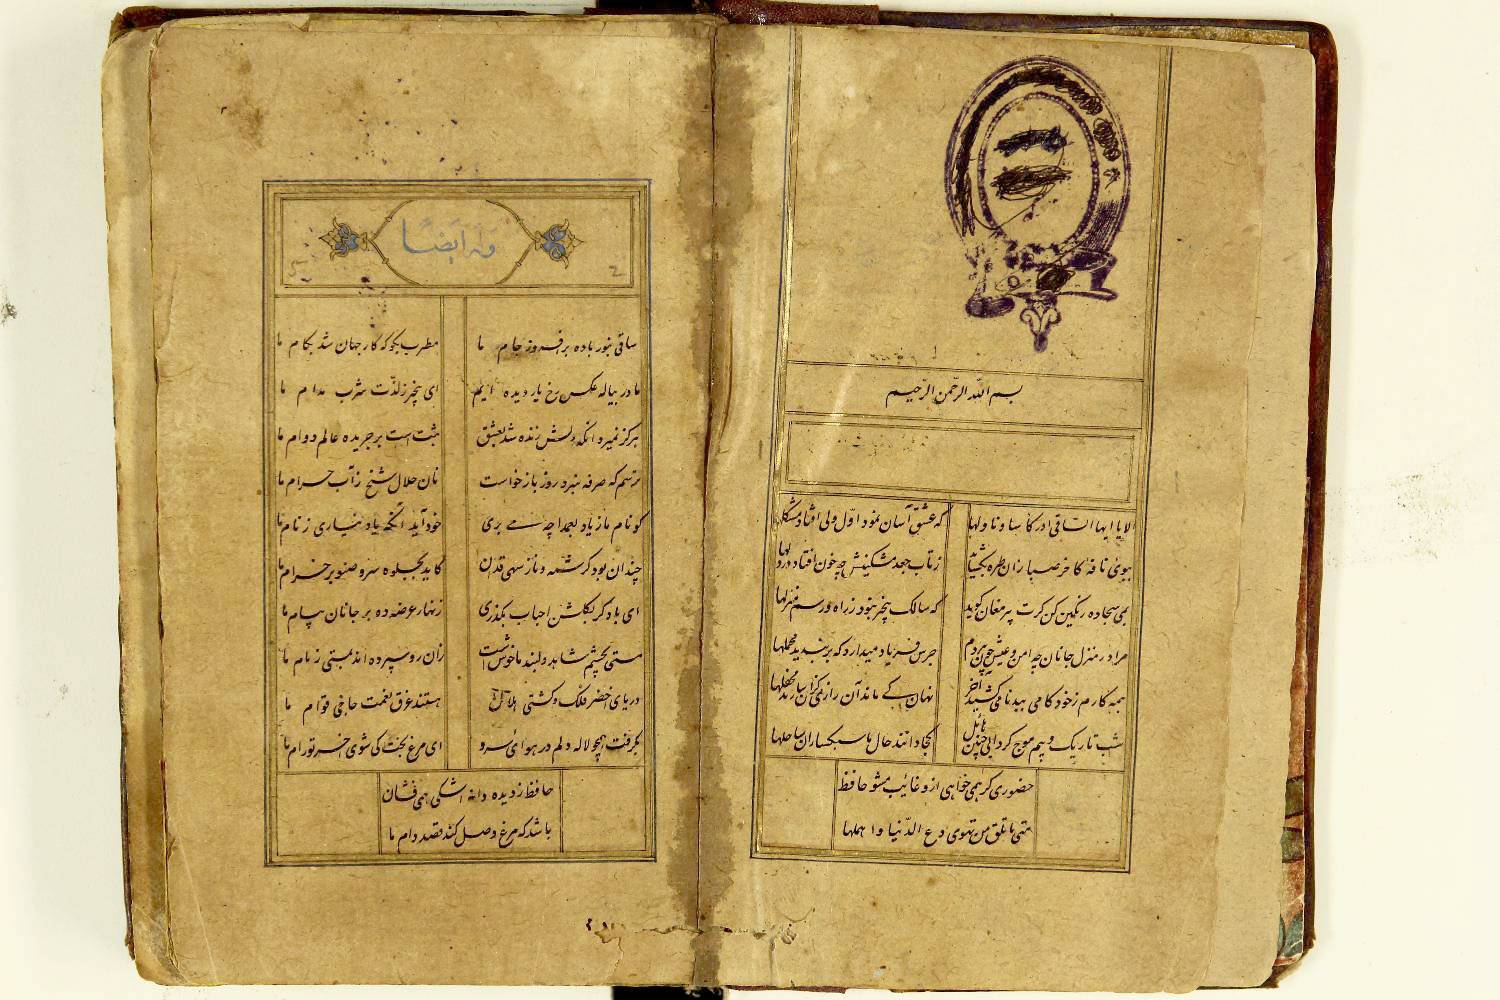 بسم الله الرحمن الرحیم
الا یا ایها الساقی ادر کاسا و ناولها که عشق آسان نمود اول ولی افتاد مشکلها
ببوی نافهٔ کاخر صبا زان طره بگشاید ز تاب جعد مشکینش چه خون افتاد در دلها
بمی سجاده رنگین کن کرت پیر مغان کوید که سالک بیخبر نبود ز راه و رسم منزلها
مرا در منزل جانان چه امن و عیش چون هر دم جرس فریاد میدارد که بربندید محملها
همه کارم ز خود کامی ببدنامی کشید آخر نهان کی ماند آن رازی کزان سازند محفلها
شب تاریک و بیم موج کردابی چنین هایل کجا دانند حال ما سبکساران ساحلها
حضوری کر همی خواهی ازو غایب مشو حافظ
متی ما تلق من تهوی دع الدنیا و اهملها
وله ایضاً
ساقی بنور باده برافروز جام ما مطرب بکو که کار جهان شد بکام ما
ما در پیاله عکس رخ یار دیده ایم ای بیخبر ز لذت شرب مدام ما
هرکز نمیرد آنکه دلش زنده شد بعشق ثبت است بر جریده عالم دوام ما
ترسم که صرفه نبرد روز بازخواست نان حلال شیخ ز آب حرام ما
کو نام ما ز یاد بعمدا چه می بری خود آید آنکه یاد نیاری ز نام ما
چندان بود کرشمه و ناز سهی قدان کاید بجلوه سرو صنوبر خرام ما
ای باد کر بکلشن احباب بکذری زنهار عرضه ده بر جانان پیام ما
مستی بچشم شاهد دلبند ما خوش است زان رو سپرده اند بمستی زمام ما
دریای اخضر فلک و کشتی هلال هستند غرق نعمت حاجی قوام ما
بکرفت همچو لاله دلم در هوای سرو ای مرغ بخت کی شوی آخر تو رام ما
حافظ ز دیده دانه اشکی همی فشان
باشد که مرغ وصل کند قصد دام ما